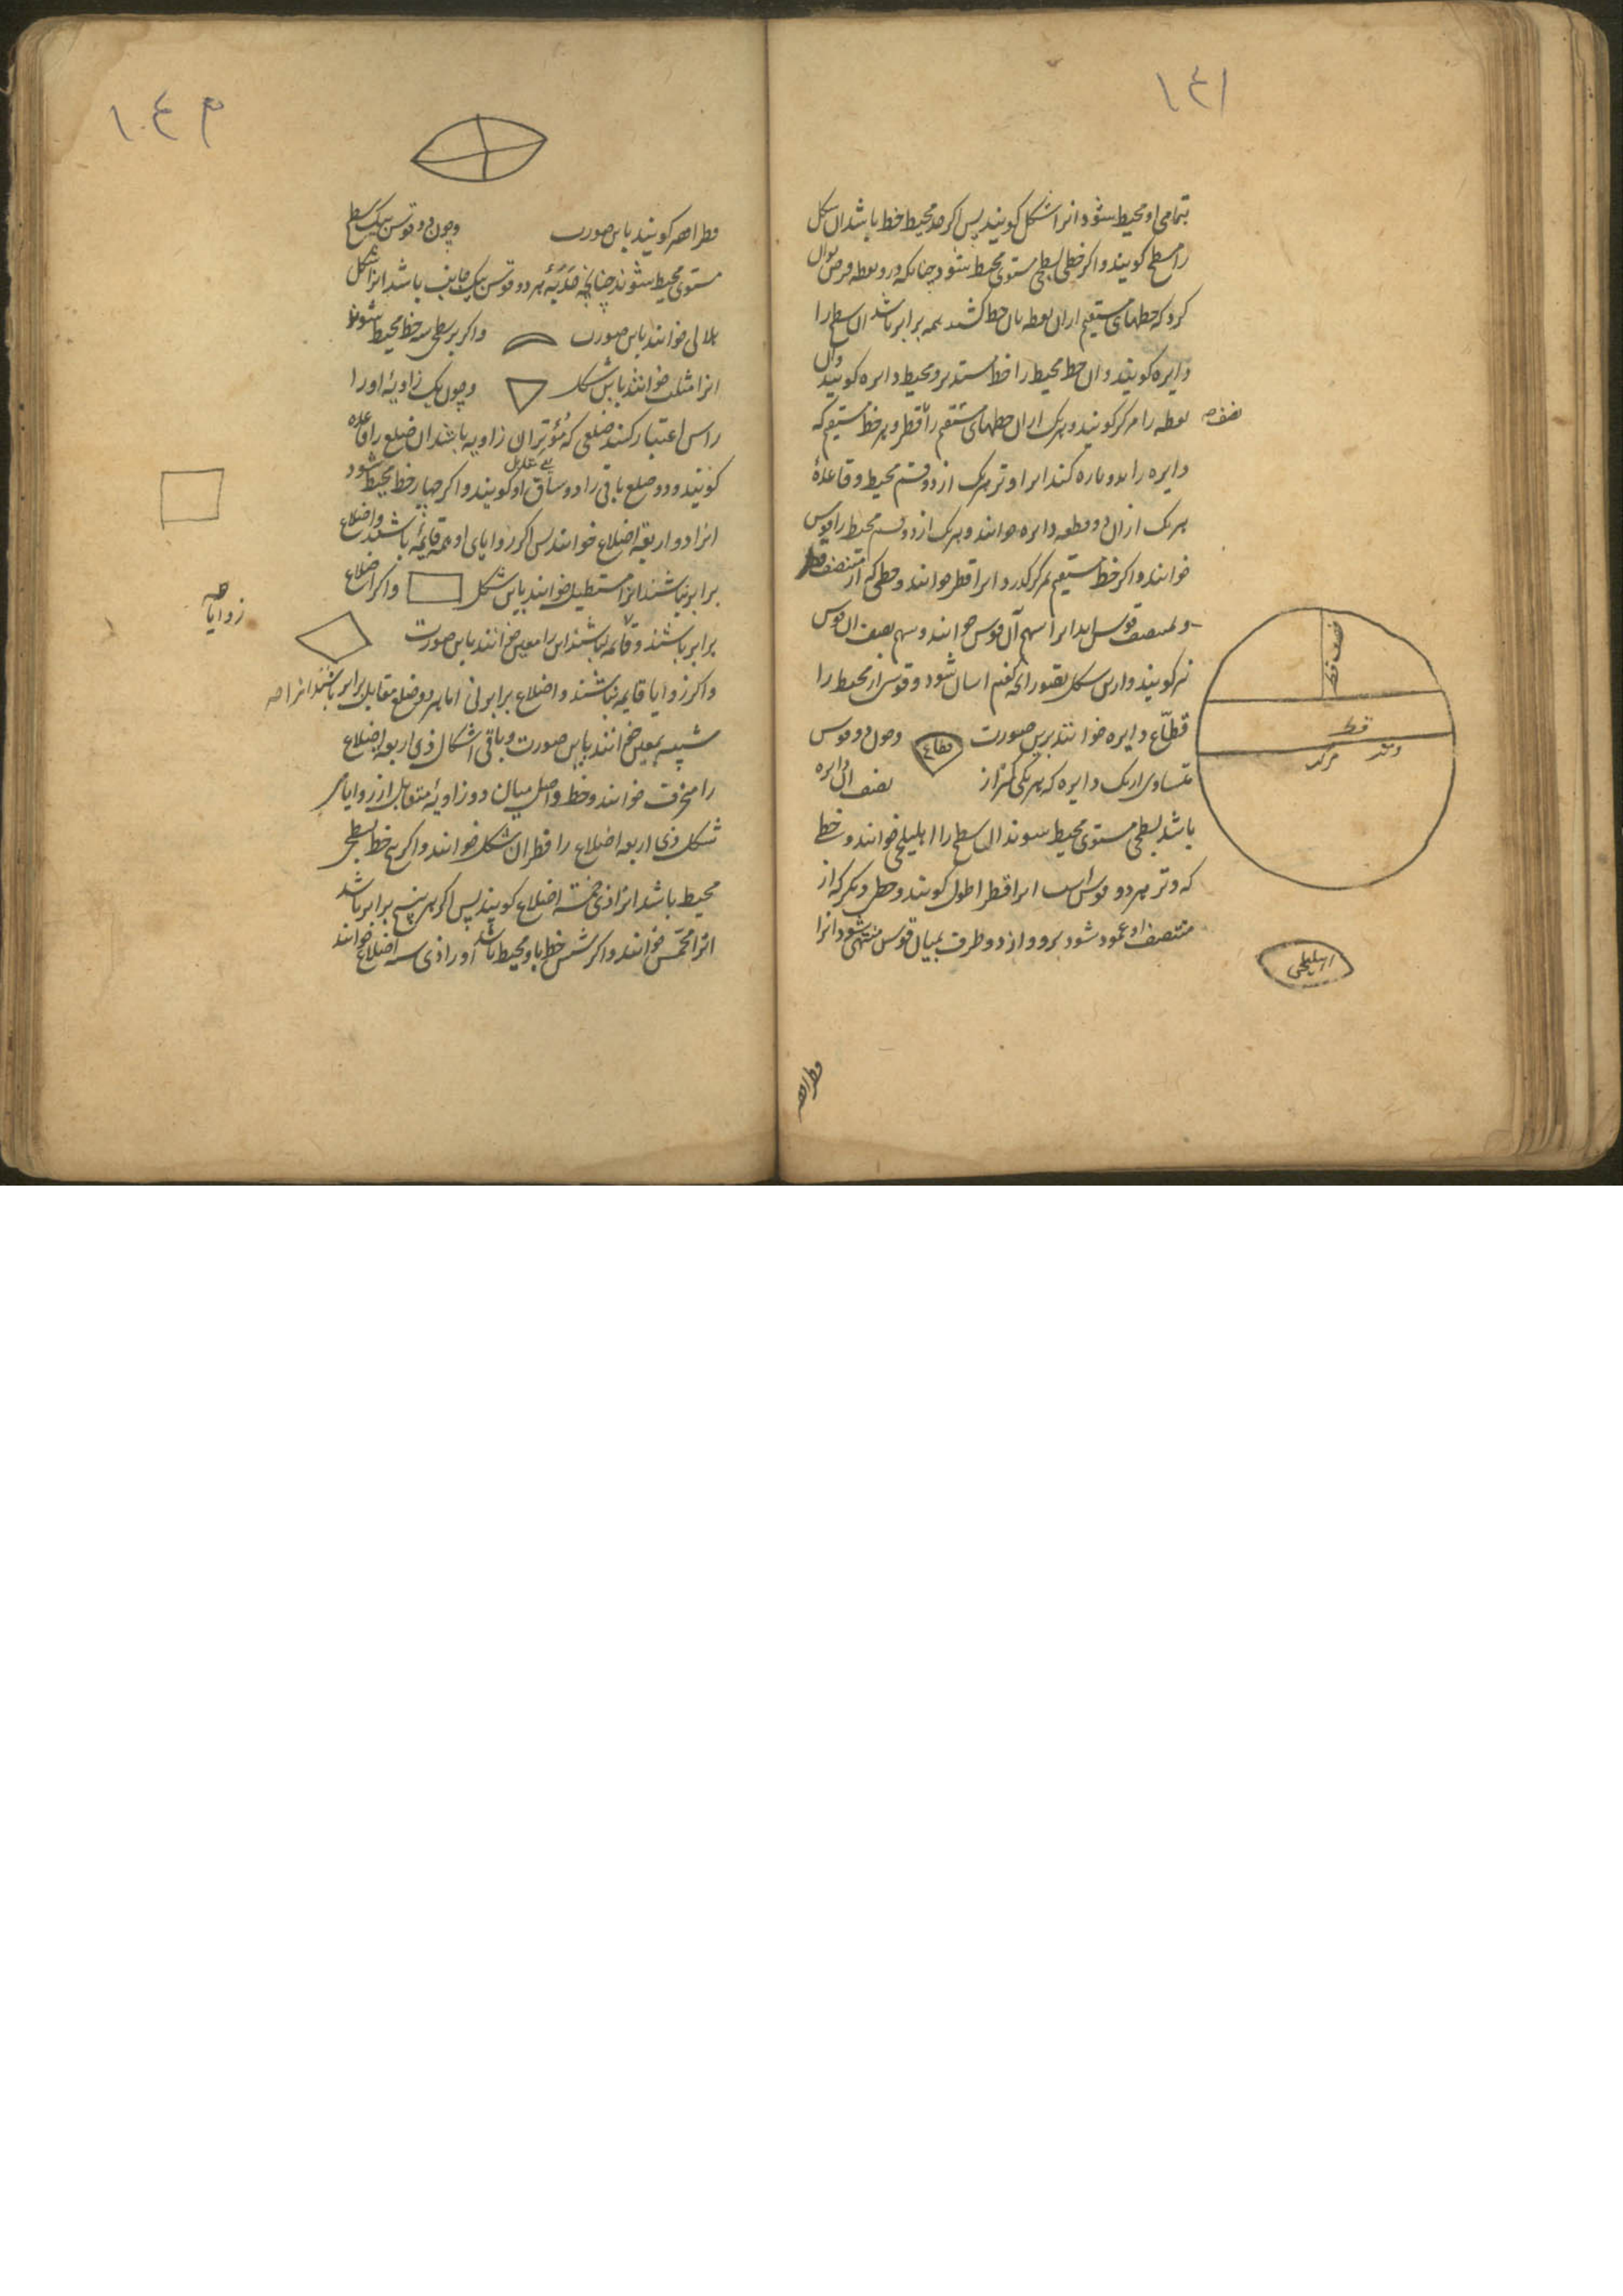 ١٤١
بتمامی او محیط شود انرا شکل کویند پس اکر حد محیط خط باشد ان شکل
را سطح کویند و اکر خطی بسطحی مستوی محیط شود چنانکه درو نقطه فرض توان
کرد که خطهای مستقیم از ان نقطه بان خط کشند همه برابر باشد ان سطح را
دایره کویند و ان خط محیط را خط مستدیر و محیط دایره کویند وان
نقطه را مرکز کویند و هر یک از ان خطهای مستقیم را قطر و هر خط مستقیم که
نصف
دایره را بدو پاره کند انرا وتر هر یک از دو قسم محیط و قاعدۀ
هر یک از ان دو قطعه دایره خوانند و هر یک از دو قسم محیط را قوس
خوانند و اکر خط مستقیم بمرکز کذرد انرا قطر خوانند و خطی که از منتصف
و بمنتصف قوس اید انرا سهم آن قوس خوانند و سهم نصف ان قوس
نیز کویند و ازین شکل تصور انچه کفتیم اسان شود و قوس از محیط را
قطاع دایره خوانند برین صورت
قطاع
و چون دو قوس
متساوی از یک دایره که هر یکی کمتر از
نصف ان دایره
باشد بسطحی مستوی محیط شوند ان سطح را اهلیلجی خوانند و خطی
که وتر هر دو قوس است انرا قطر اطول کویند و خطی دیکر که از
منتصف او عمود شود برو و از دو طرف بمیان قوس منتهی شود انرا
نصف قطر
قطر
وتر
مرکز
اهلیلجی
١٠٤م
قطر کویند باین صورت
و چون دو قوس بیک سطح
مستوی محیط شوند چنانچه حدبۀ هر دو قوس بیک جانب باشد انرا شکل
هلالی خوانند باین صورت
و اکر بر سطحی سه خط محیط شوند
انرا مثلث خوانند باین شکل
و چون یک زاویۀ او را
راس اعتبار کنند ضلعی که مؤتر ان زاویه باشد ان ضلع را قاعده
کویند و دو ضلع باقی را دو ساق او کویند و اکر چهار خط محیط شود
انرا ذو اربعة اضلاع خوانند پس اکر زوایای او همه قایمه باشند و اضلاع
برابر نباشند انرا مستطیل خوانند باین شکل
و اکر اضلاع
برابر باشند و قایمه نباشند این را معین خوانند باین صورت
زوایا
و اکر زوایا قایمه نباشند و اضلاع برابر نی اما هر دو ضلع مقابل برابر باشند انرا
شبیه بمعین خوانند باین صورت و باقی اشکال ذی اربعه اضلاع
را منحرف خوانند و خط واصل میان دو زاویۀ متقابل از زوایای
شکل ذی اربعه اضلاع را قطر ان شکل خوانند و اکر پنج خط بسطحی
محیط باشد انرا ذی خمسة اضلاع کویند پس اکر هر پنج برابر باشد
انرا مخمس خوانند و اکر شش خط باو محیط باشد او را ذی سته اضلاع خوانند